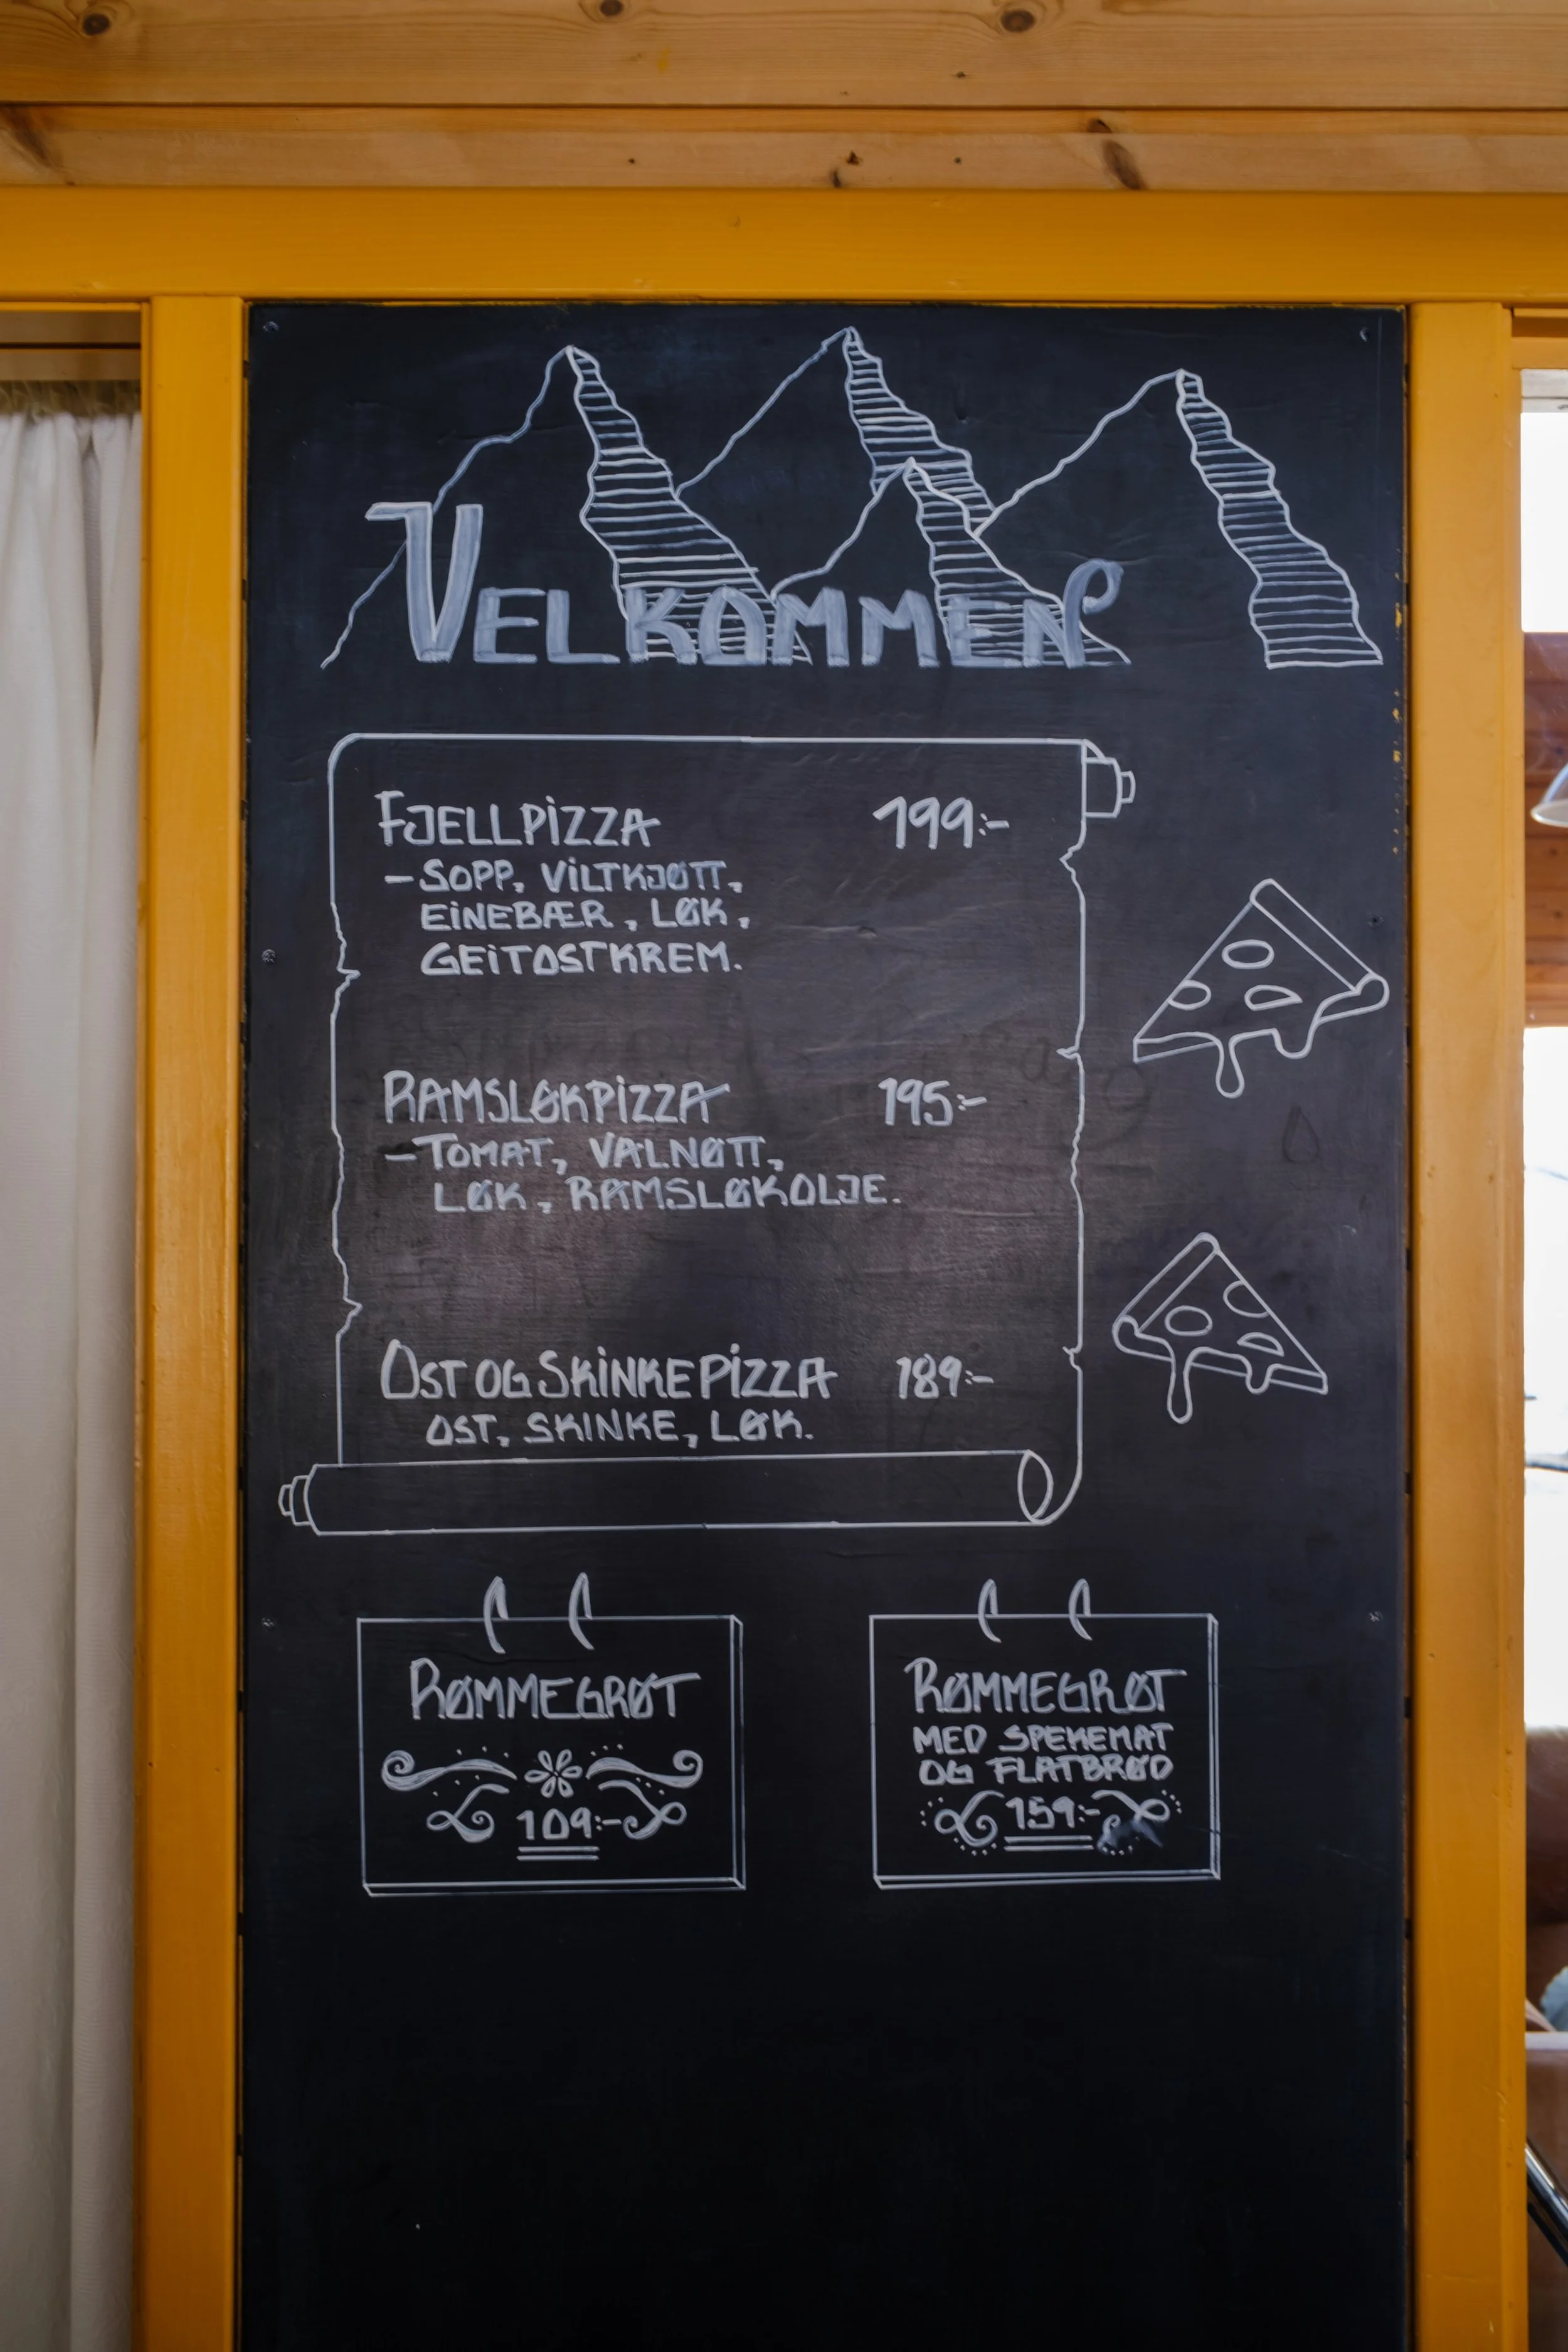 VELKOMMEN
FJELLPIZZA 199:-
- SOPP, VILTKJØTT,
EINEBÆR, LØK,
GEITOSTKREM.
RAMSLØKPIZZA 195:-
- TOMAT, VALNØTT,
LØK, RAMSLØKOLJE.
OST OG SKINKEPIZZA 189:-
OST, SKINKE, LØK.
RØMMEGRØT
109:-
RØMMEGRØT
MED SPEKEMAT
OG FLATBRØD
159:-